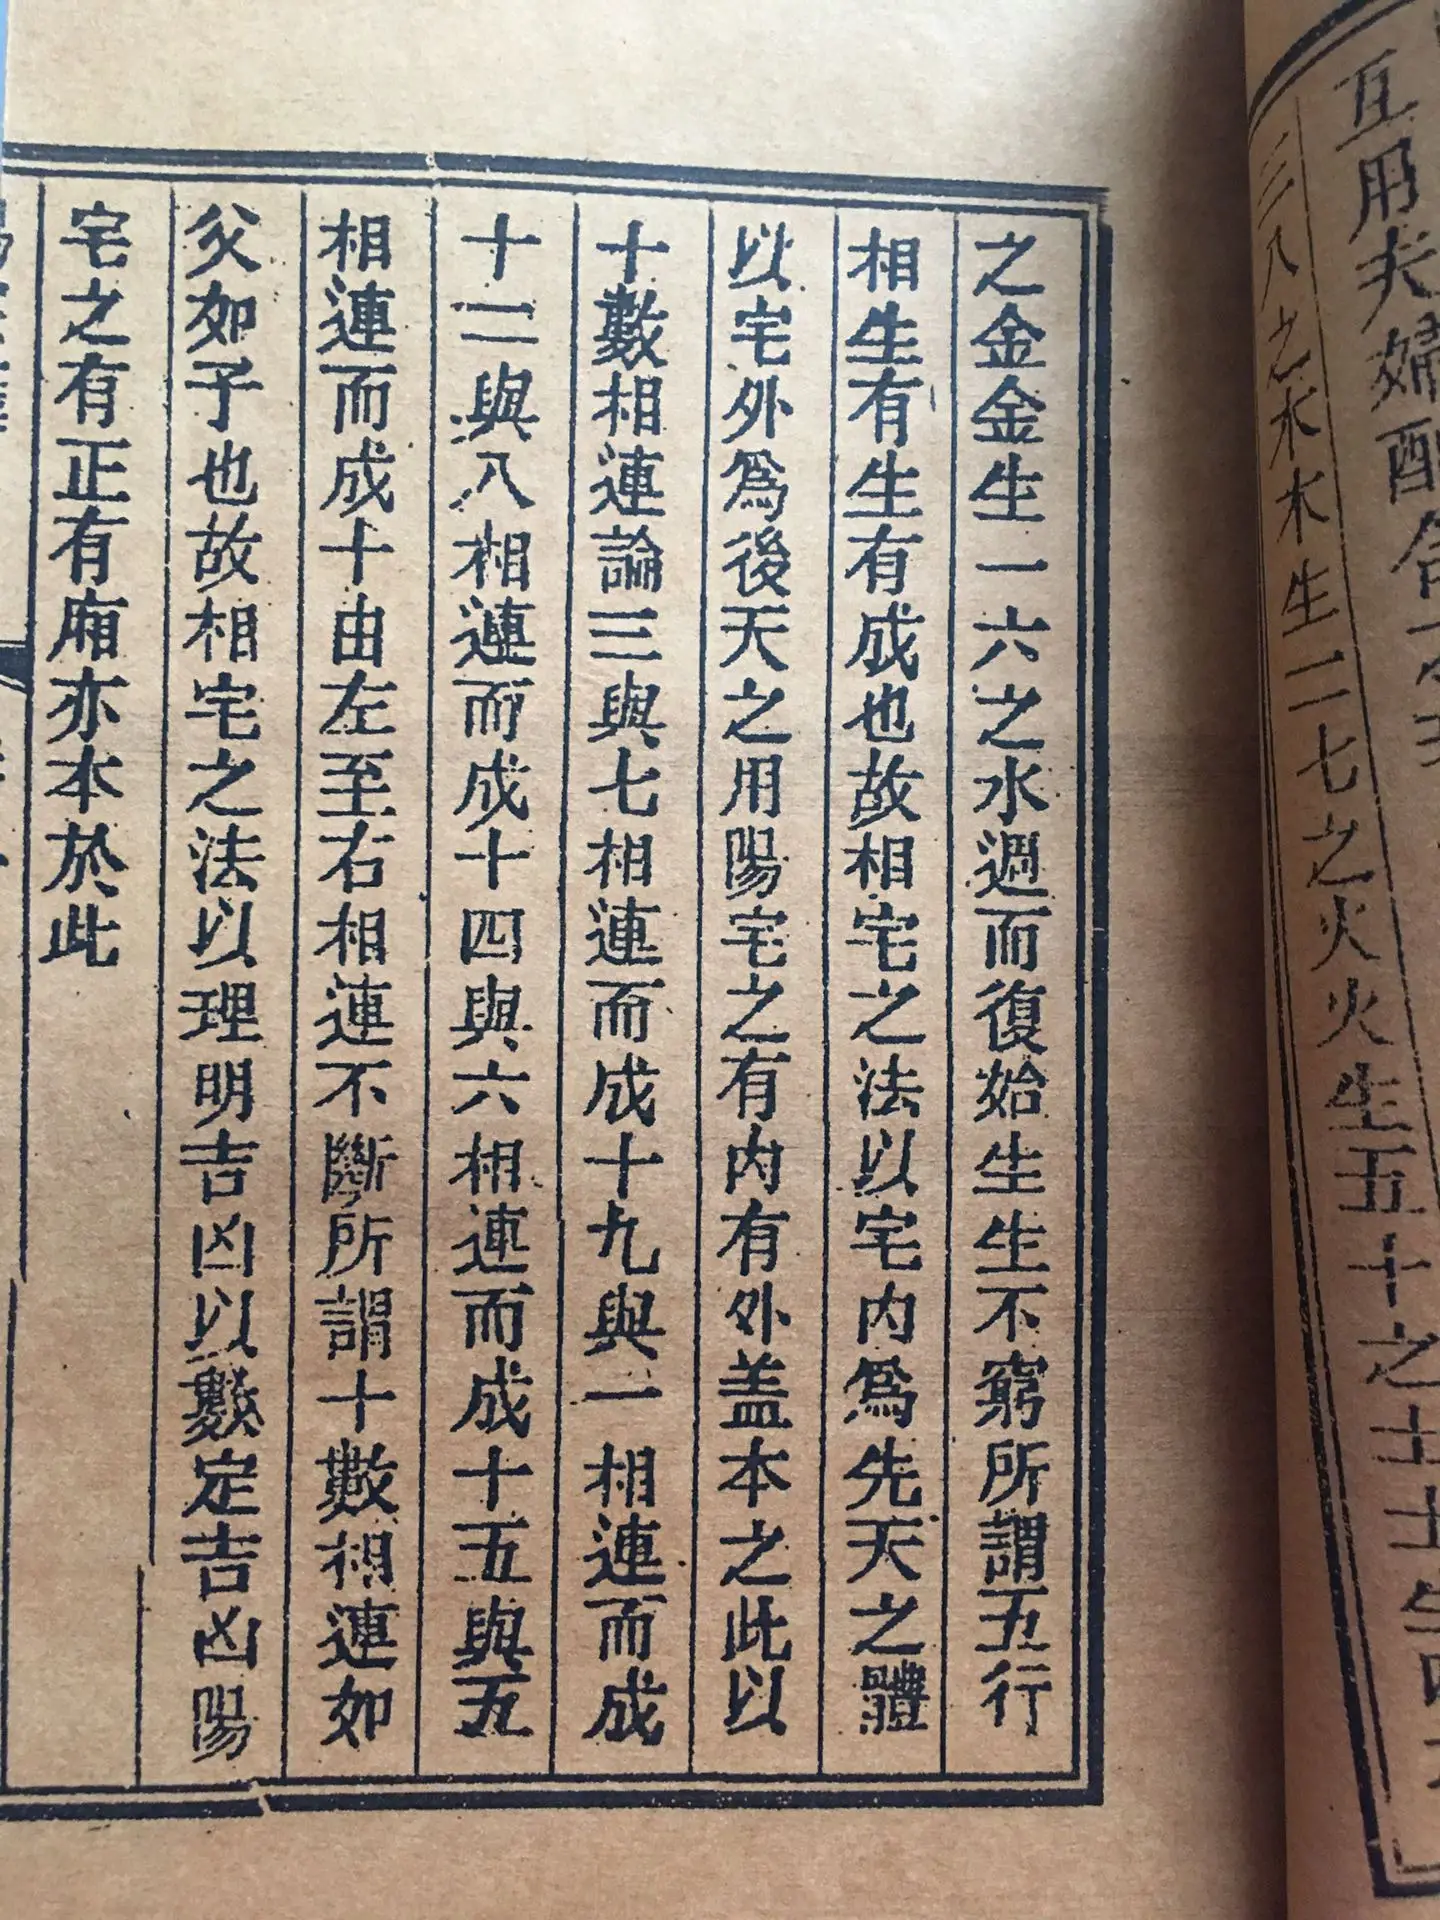 互用夫婦配合
三八之木木生二七之火火生五十之土土生四
之金金生一六之水週而復始生生不窮所謂五行
相生有生有成也故相宅之法以宅內為先天之體
以宅外為後天之用陽宅之有內有外盖本之此以
十數相連論三與七相連而成十九與一相連而成
十二與八相連而成十四與六相連而成十五與五
相連而成十由左至右相連不斷所謂十數相連如
父如子也故相宅之法以理明吉凶以數定吉凶陽
宅之有正有廂亦本於此